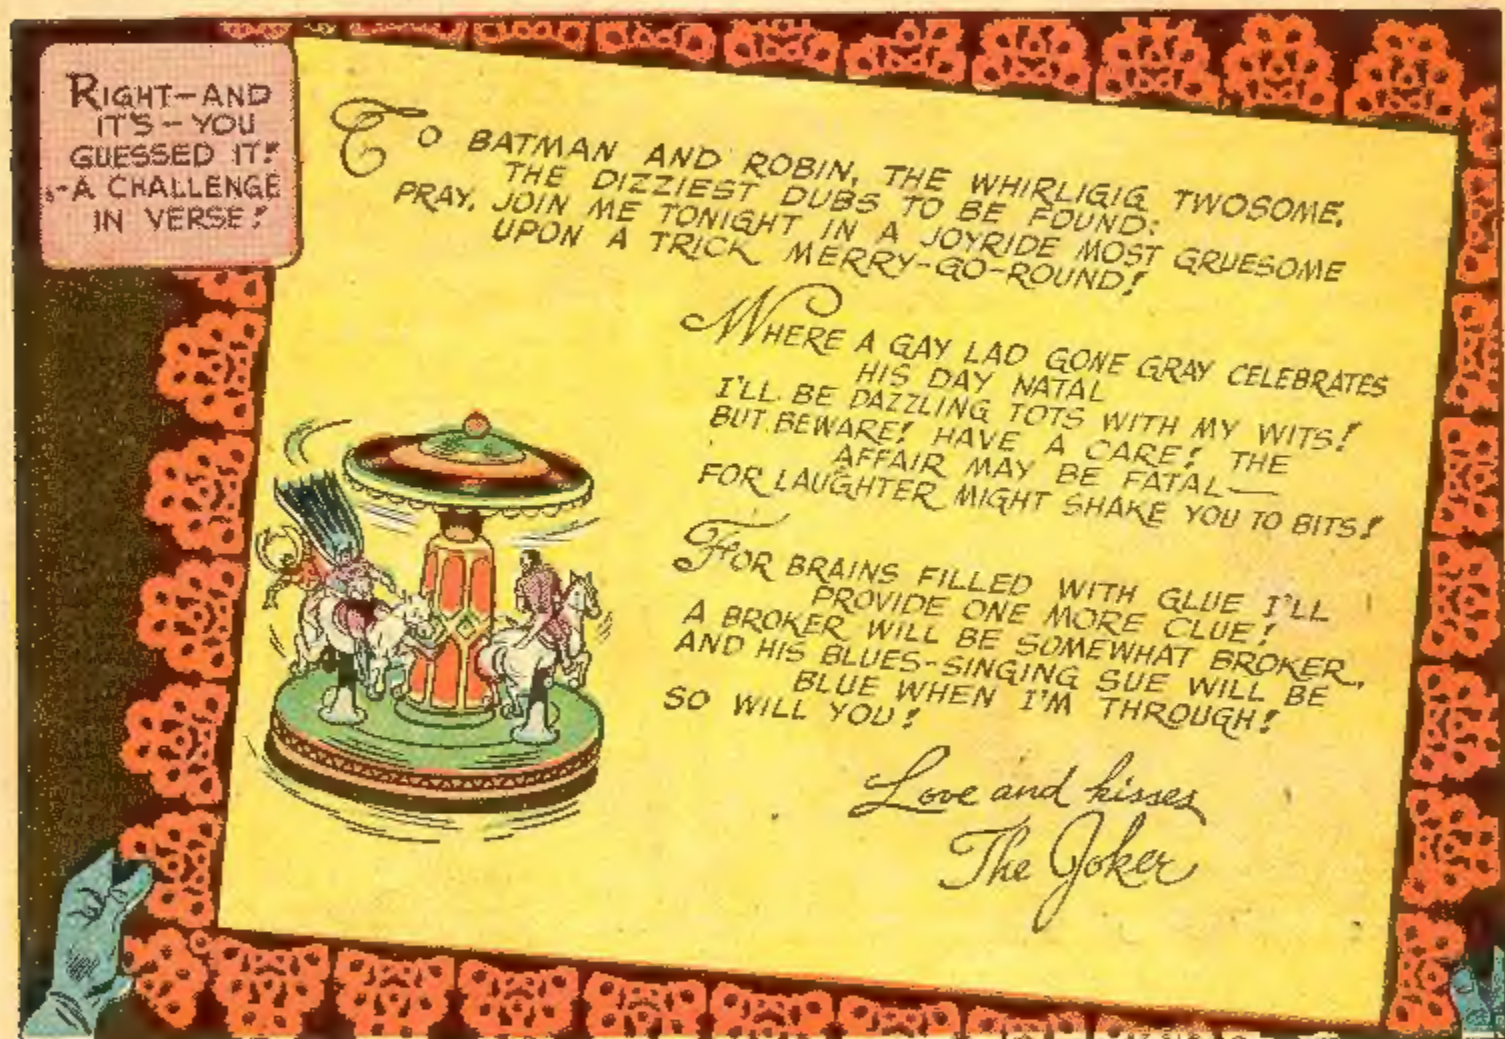 RIGHT—AND
IT'S—YOU
GUESSED IT!
-A CHALLENGE
IN VERSE!
TO BATMAN AND ROBIN, THE WHIRLIGIG TWOSOME,
THE DIZZIEST DUBS TO BE FOUND:
PRAY, JOIN ME TONIGHT IN A JOYRIDE MOST GRUESOME
UPON A TRICK MERRY-GO-ROUND!
WHERE A GAY LAD GONE GRAY CELEBRATES
HIS DAY NATAL
I'LL BE DAZZLING TOTS WITH MY WITS!
BUT BEWARE! HAVE A CARE! THE
AFFAIR MAY BE FATAL—
FOR LAUGHTER MIGHT SHAKE YOU TO BITS!
FOR BRAINS FILLED WITH GLUE I'LL
PROVIDE ONE MORE CLUE!
A BROKER WILL BE SOMEWHAT BROKER,
AND HIS BLUES-SINGING SUE WILL BE
BLUE WHEN I'M THROUGH!
SO WILL YOU!
Love and kisses
The Joker